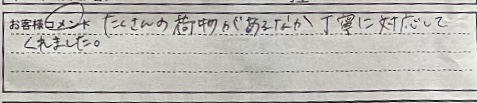 お客様コメント たくさんの荷物があるなか丁寧に対応して
くれました。